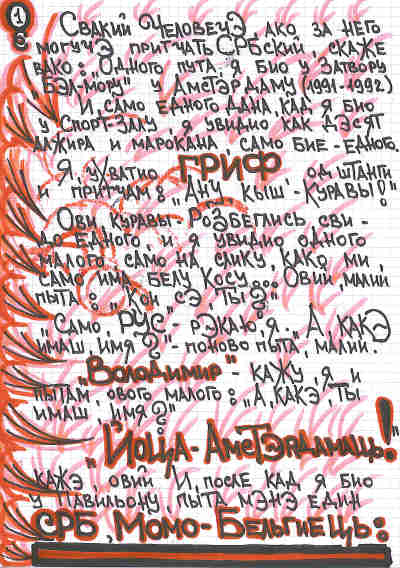 1
Свакий Человечэ, ако за него
могучэ притчать Србский, скаже
вако: „Одного пута, я био у затвору
„Бэл-мору" у Амстэрдаму (1991-1992)
И, само едного дана, кад я био
у спорт-залу, я увидио как дэсят
алжира и марокана, само бие - едного.
Я, ухватио ГРИФ од штанги
и притчам: „Ану, кыш - куравы!"
Ови куравы - розбеглись сви -
до едного, и я увидио одного
малого, само на слику, како ми,
само има белу косу... Овий, малий
пыта: „Кои сэ ты?"
„Само, РУС" - рэкаю, я. „А, какэ
имаш, имя?" - поново пыта, малий.
„Володимир" - кажу, я и
пытам, ового малого: „А, какэ, ты
имаш имя?"
„Йоца - Амстэрдамаць!"
кажэ, овий. И, после кад я био
у павильону, пыта мэнэ един
СРБ, Момо - Бельгиець: